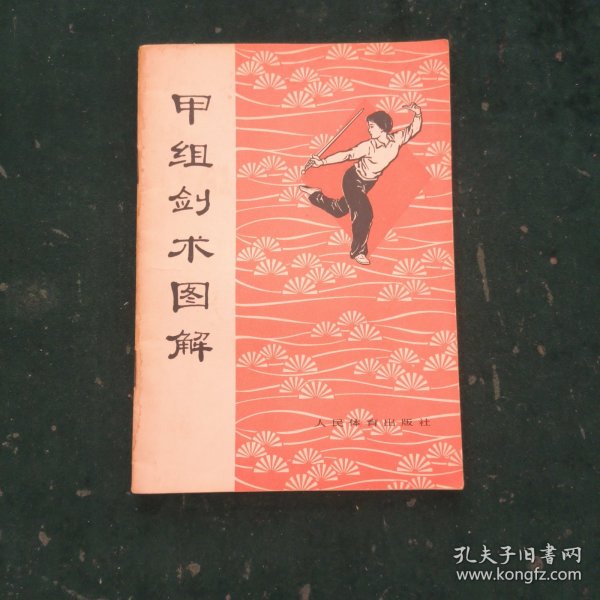 甲组剑术图解
人民体育出版社
孔夫子旧书网
www.kongfz.com